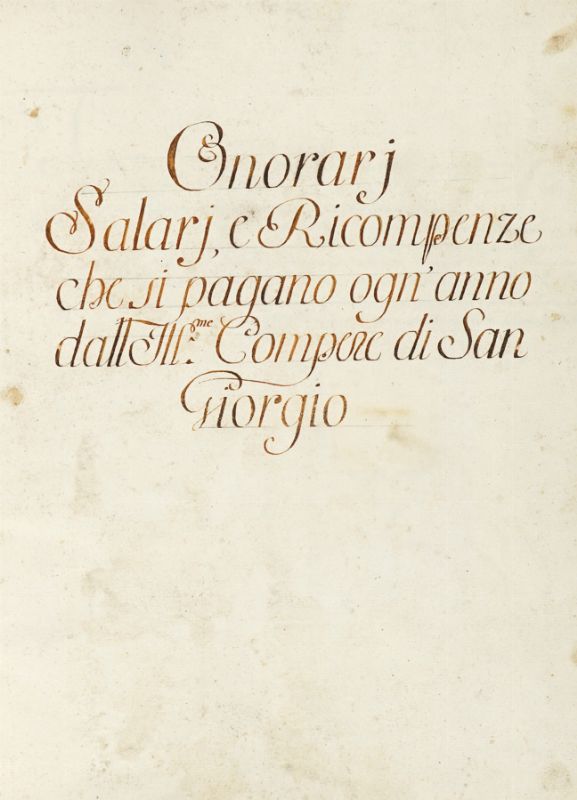 Onorarj
Salarj, e Ricompenze
che si pagano ogn' anno
dall' Ill.me Compere di San
Giorgio